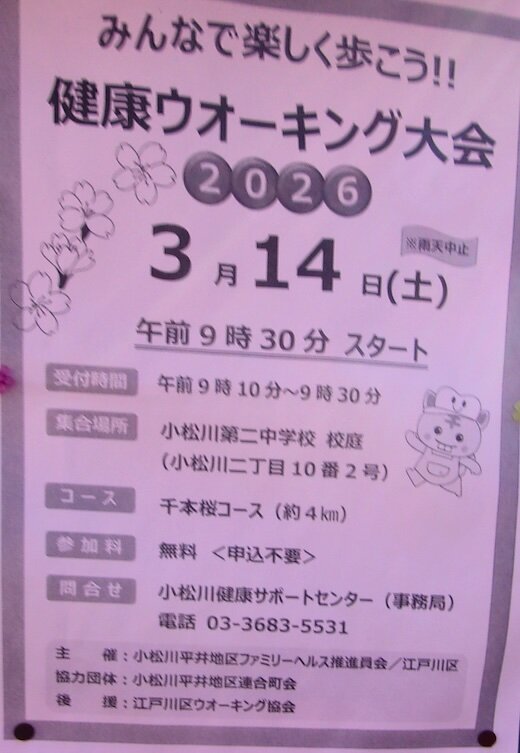 みんなで楽しく歩こう!!
健康ウオーキング大会
2026
3月14日(土)
※雨天中止
午前9時30分 スタート
受付時間 午前9時10分～9時30分
集合場所 小松川第二中学校 校庭
（小松川二丁目10番2号）
コース 千本桜コース（約4㎞）
参加料 無料 ＜申込不要＞
問合せ 小松川健康サポートセンター（事務局）
電話 03-3683-5531
主　催：小松川平井地区ファミリーヘルス推進員会／江戸川区
協力団体：小松川平井地区連合町会
後　援：江戸川区ウオーキング協会